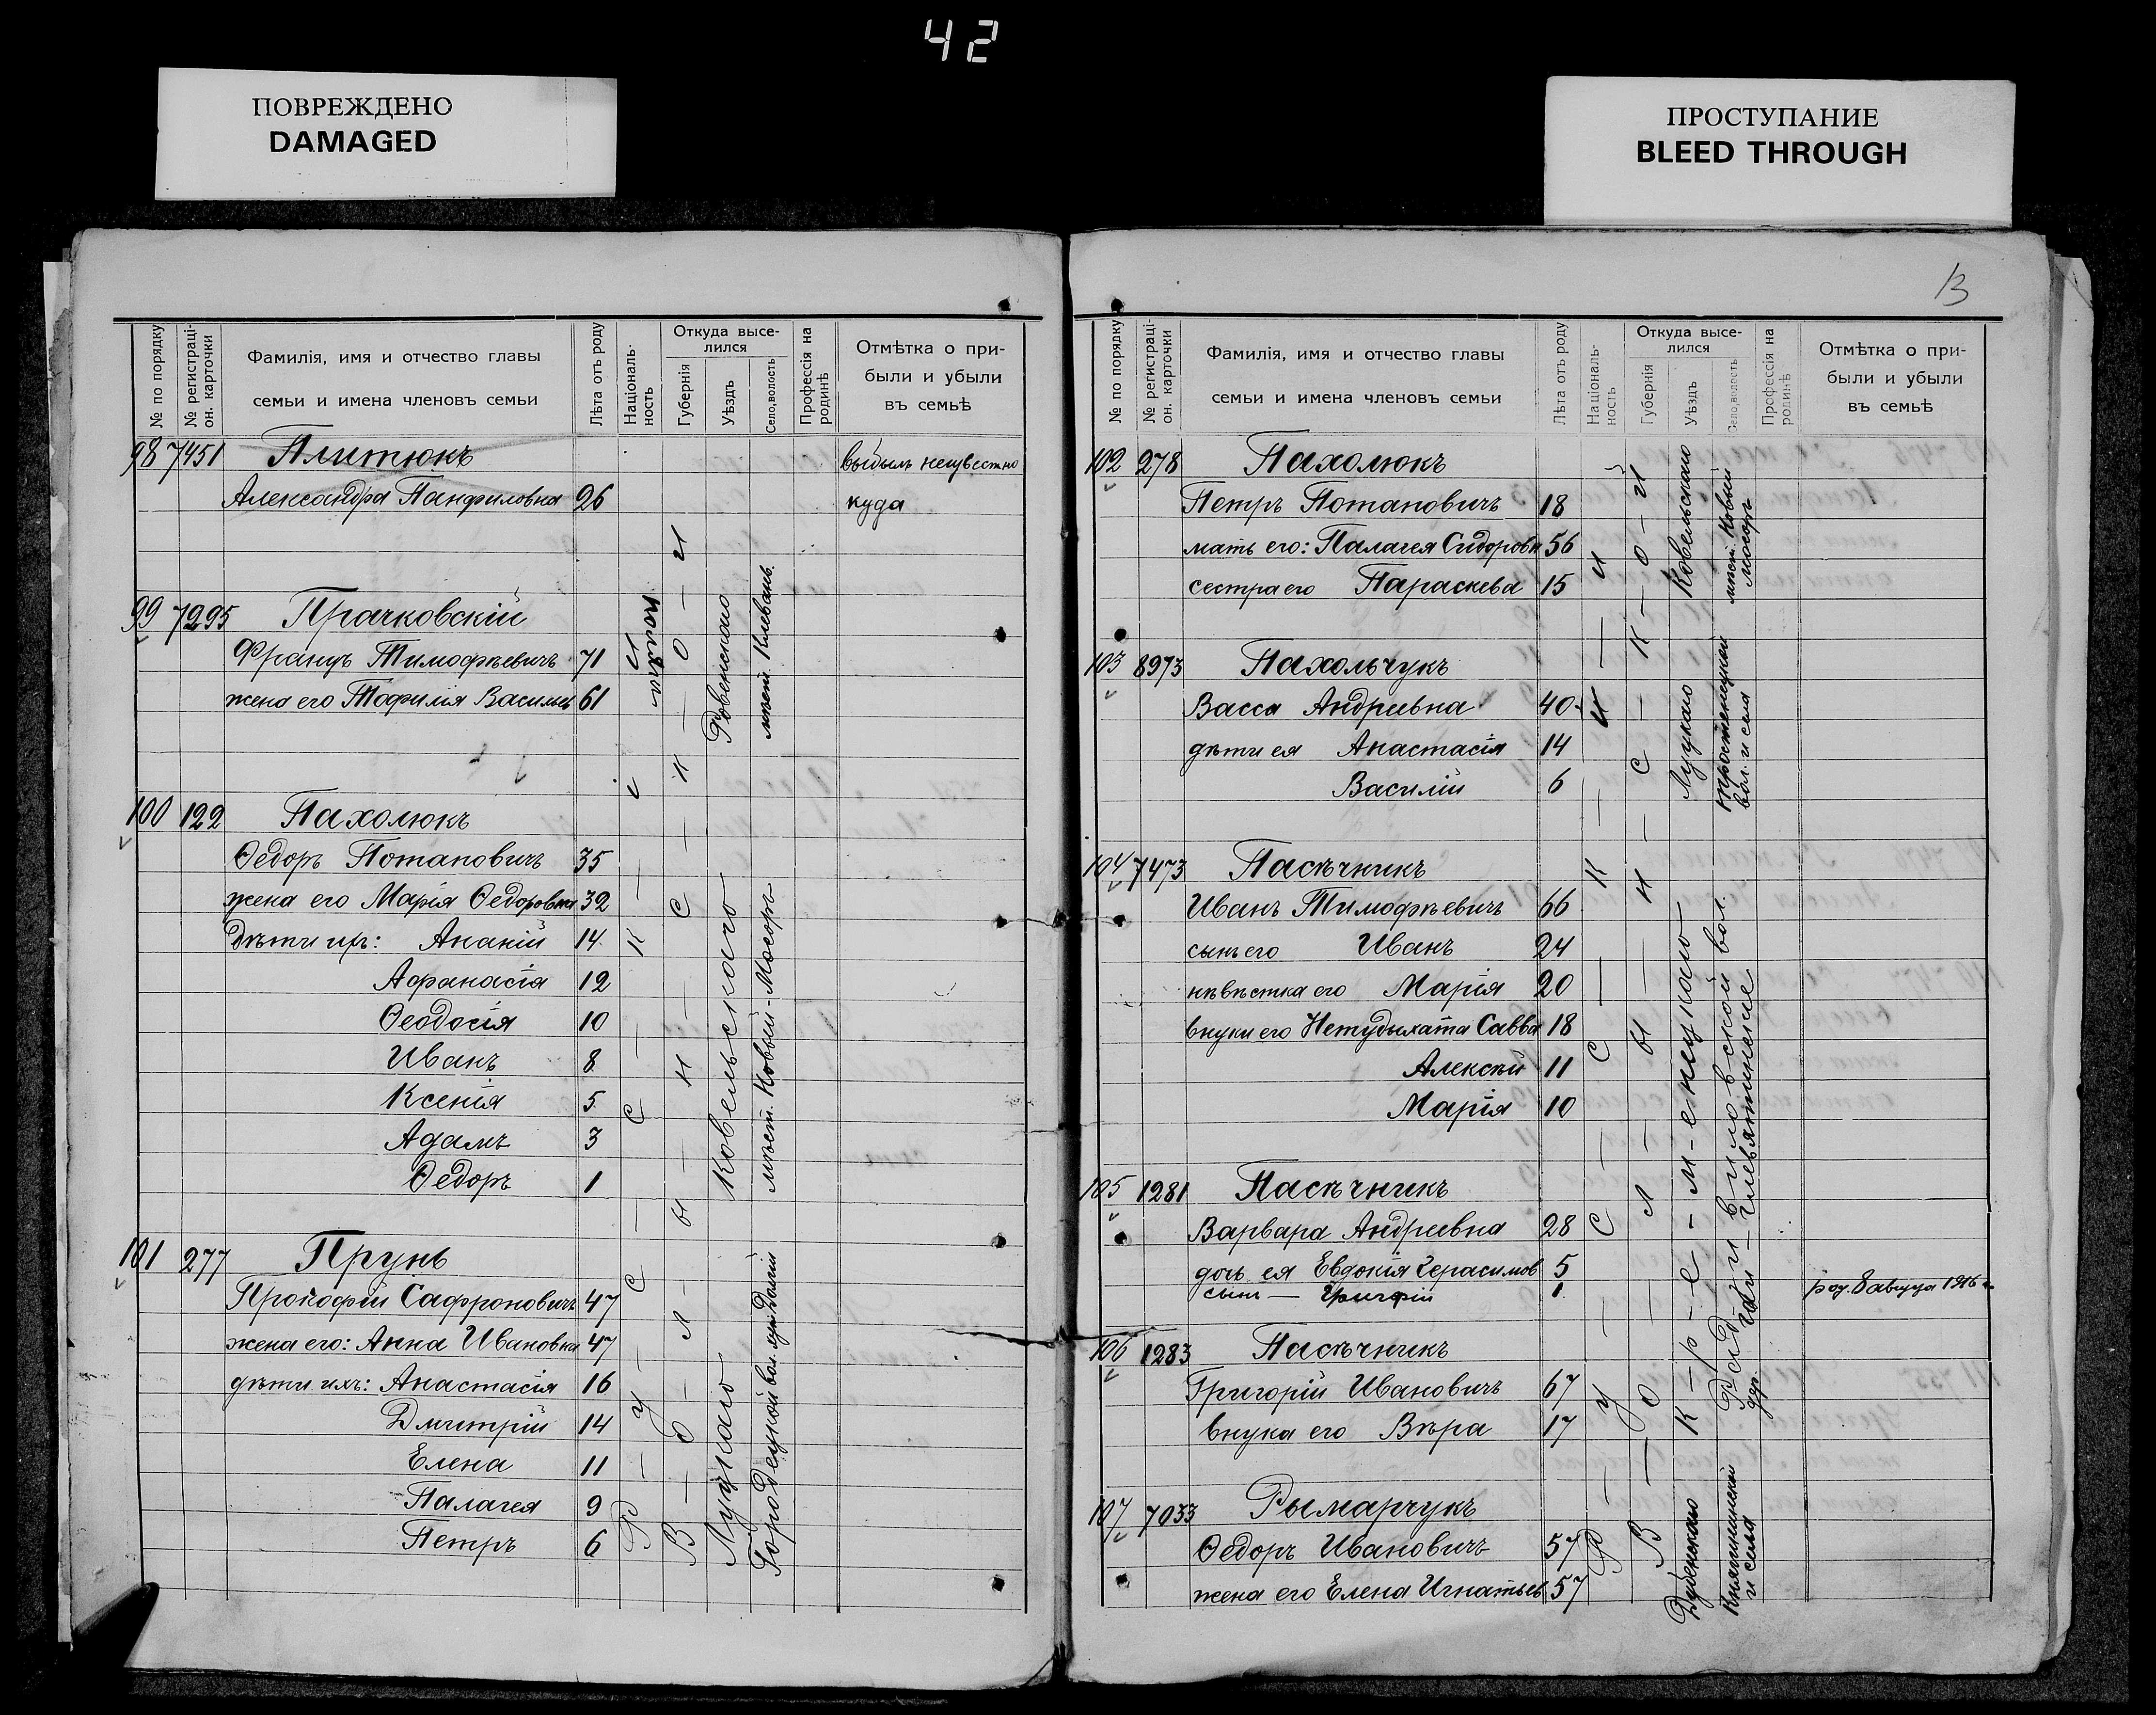 42
ПОВРЕЖДЕНО
DAMAGED
ПРОСТУПАНИЕ
BLEED THROUGH
№ по порядку
№ регистраці-
он. карточки
Фамилія, имя и отчество главы
семьи и имена членовъ семьи
Лѣта отъ роду
Націоналъ-
ность
Откуда высе-
лился
Губернія
Уѣздъ
Село, волость
Профессія на
родинѣ
Отмѣтка о при-
были и убыли
въ семьѣ
98 7451 Плитюкъ выбылъ неизвестно
Александра Панфиловна 26 куда
99 7295 Прачковскій
Францъ Тимофѣевичъ 71
жена его Тофилія Васильев 61
100 122 Пахолюкъ
Ѳедоръ Потаповичъ 35
жена его Марія Ѳедоровна 32
Дѣти ихъ: Ананій 14
Афанасія 12
Ѳеодосія 10
Иванъ 8
Ксенія 5
Адамъ 3
Ѳедоръ 1
101 277 Прунь
Прокофій Сафроновичъ 47
жена его: Анна Ивановна 47
дѣти ихъ: Анастасія 16
Дмитрій 14
Елена 11
Палагея 9
Петръ 6
Р — у — с — с — к — і — й
поляки
В — о — л — ы — н — с — к — о — й
Ровенскаго
мѣст. Клевань
Ковельскаго
мѣст. Новый-Мосоръ
Луцкаго
Городецкой вол.
13
№ по порядку
№ регистраці-
он. карточки
Фамилія, имя и отчество главы
семьи и имена членовъ семьи
Лѣта отъ роду
Націоналъ-
ность
Откуда высе-
лился
Губернія
Уѣздъ
Село, волость
Профессія на
родинѣ
Отмѣтка о при-
были и убыли
въ семьѣ
102 278 Пахолюкъ
Петръ Потаповичъ 18
мать его: Палагея Сидоровн 56
сестра его Параскева 15
103 8973 Пахольчукъ
Васса Андреевна 40
дѣти ея Анастасія 14
Василій 6
104 7473 Пасѣчникъ
Иванъ Тимофѣевичъ 66
сынъ его Иванъ 24
невѣстка его Марія 20
внуки его Нетудыхата Савва 18
Алексѣй 11
Марія 10
105 1281 Пасѣчникъ
Варвара Андреевна 28
дочь ея Евдокія Герасимов 5
сынъ — Григорій 1 род. 8 августа 1916 г.
106 1283 Пасѣчникъ
Григорій Ивановичъ 67
внука его Вѣра 17
107 7033 Рымарчукъ
Ѳедоръ Ивановичъ 57
жена его Елена Игнатьев 57
Р — у — с — с — к — и — й
В — о — л — ы — н — с — к — о — й
Ковельскаго
мѣст. Новый
Мосоръ
Луцкаго
вол. и села
К — р — е — м — е н е ц к а г о
Радзивиловской вол.
Дубенскаго
Княгининской
и села